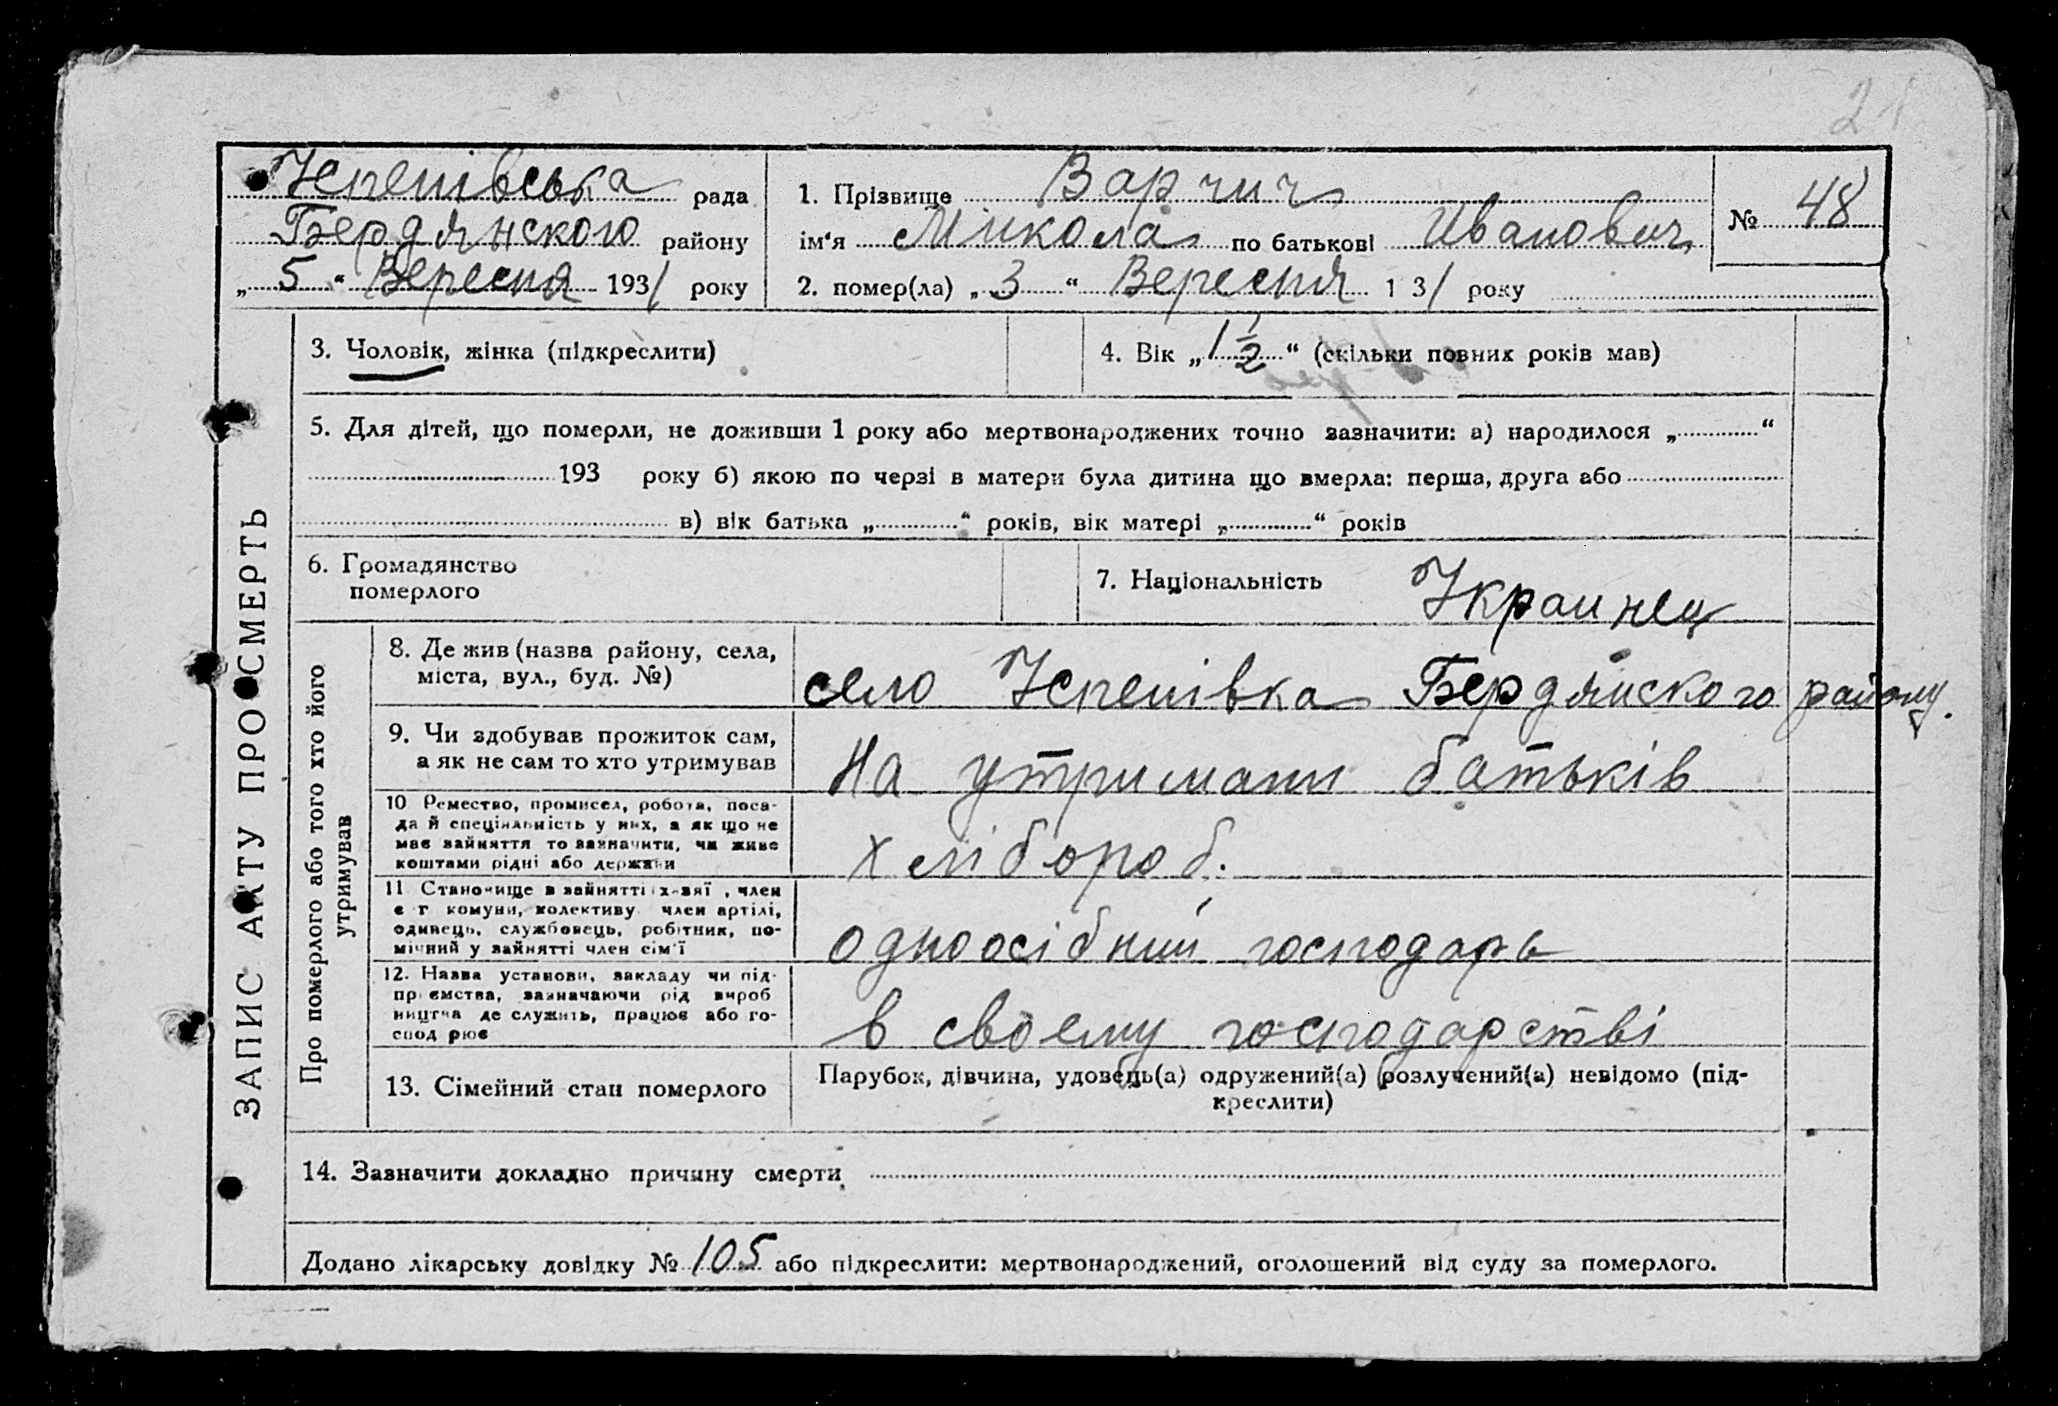 21
Успенівська рада
Бердянского району
„ 5 “ Вересня 1931 року
1. Прізвище Варчич
ім‘я Микола по батькові Иванович
№ 48
2. помер(ла) „ 3 “ Вересня 1 31 року
ЗАПИС АКТУ ПРО СМЕРТЬ
3. Чоловік, жінка (підкреслити)
4. Вік „ 1 1/2 “ (скільки повних років мав)
5. Для дітей, що померли, не доживши 1 року або мертвонароджених точно зазначити: а) народилося „ “
193 року б) якою по черзі в матери була дитина що вмерла: перша, друга або
в) вік батька „ “ років, вік матері „ “ років
6. Громадянство
померлого
7. Національність Украинец
Про померлого або того хто його
утримував
8. Де жив (назва району, села,
міста, вул., буд. №)
село Успенівка Бердянского району.
9. Чи здобував прожиток сам,
а як не сам то хто утримував
На утримани батьків
10 Ремество, промисел, робота, поса-
да й спеціяльність у них, а як що не
має зайняття то зазначити, чи живе
коштами рідні або держави
хлібороб.
11 Становище в зайнятті хазяї , член
с г комуни, колективу член артілі,
одинець, службовець, робітник, по-
мічний у зайнятті член сім‘ї
одноосібний господарь
12. Назва установи, закладу чи під-
пр ємства, зазначаючи рід вироб
ництва де служить, працює або го-
спод рює
в своему господарстві
13. Сімейний стан померлого
Парубок, дівчина, удовець(а) одружений(а) розлучений(а) невідомо (під-
креслити)
14. Зазначити докладно причину смерти
Додано лікарську довідку № 105 або підкреслити: мертвонароджений, оголошений від суду за померлого.